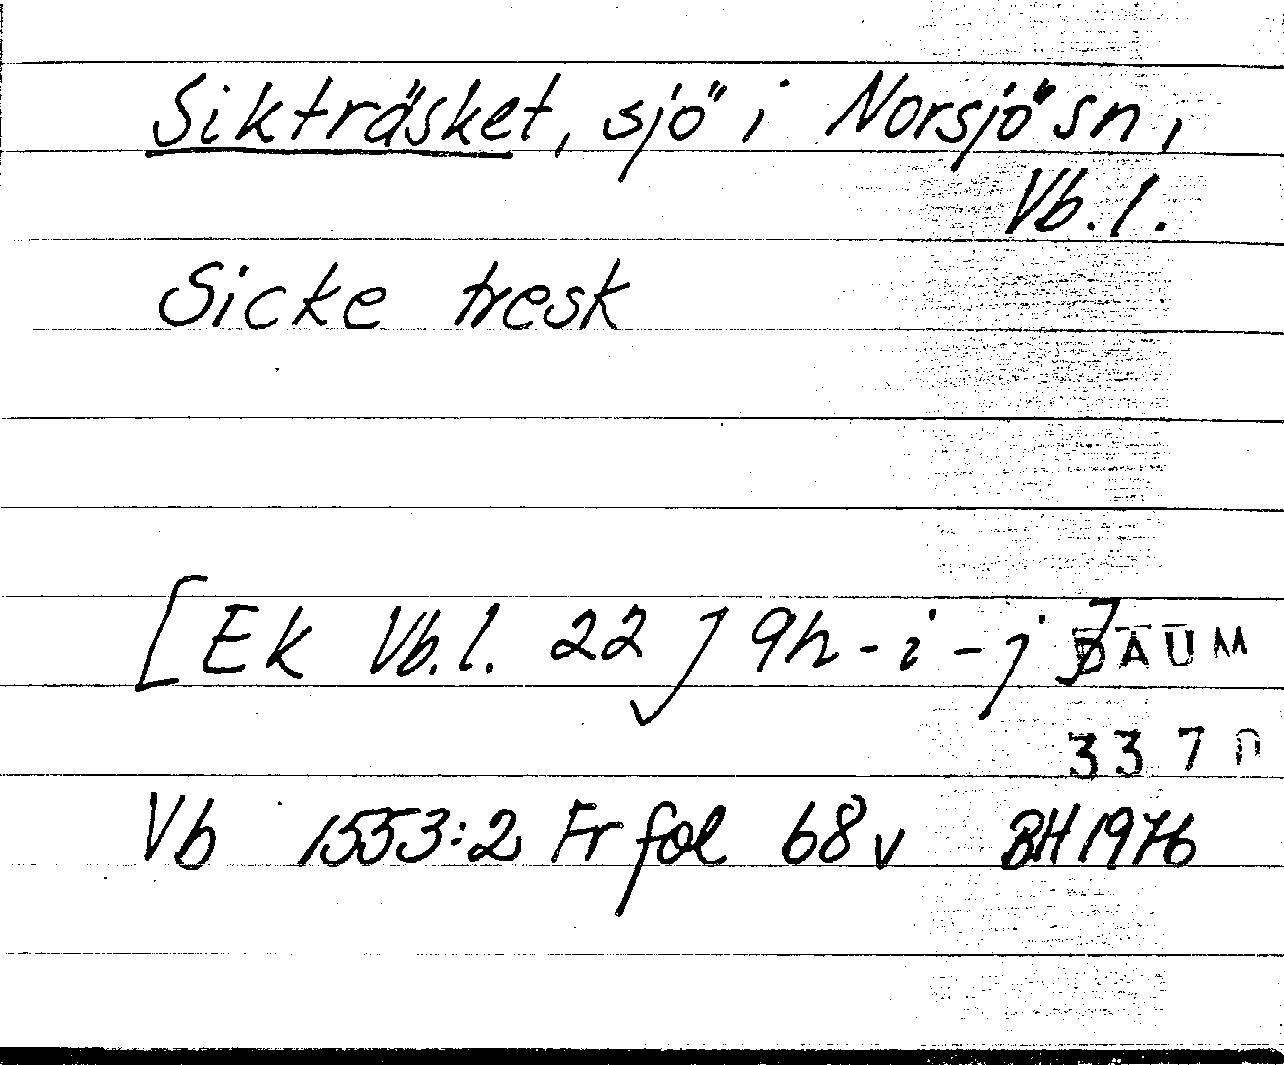 Sikträsket, sjö i Norsjö sn,
Vb. l.
Sicke tresk
[Ek Vb. l. 22 J 9h-i-j]
DAUM
337 D
Vb 1553:2 Fr fol 68 v BH 1976